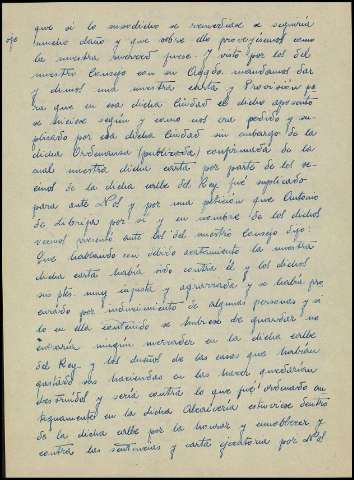 que si lo susodicho se remediase se seguiria
mucho daño y que sobre ello proveyésemos como
la nuestra merced fuese. Y visto por los del
nuestro Consejo con su Acgdo. mandamos dar
y dimos una nuestra carta y Provisión pa
ra que en esa dicha Ciudad el dicho aposento
se hiciese según y como nos era pedido y su-
plicado por esa dicha Ciudad sin embargo de la
dicha Ordenanza (publicada) confirmada de la
cual nuestra dicha carta por parte de los ve-
cinos de la dicha calle del Rey fué suplicado
para ante Nos y por una petición que Antonio
de Librija por si y en nombre de los dichos
vecinos presentó ante los del nuestro consejo dijo:
Que hablando con debido acatamiento la nuestra
dicha carta había sido contra él y los dichos
sus ptes. muy injusta y agraviada y se había pro
curado por inducimiento de algunas personas y si
lo en ella contenido se hubiese de guardar no
entraría ningún mercader en la dicha calle
del Rey y los dueños de las casas que habían
gastado sus haciendas en las hacer quedarían
destruidos y sería contra lo que fué ordenado an
tiguamente en la dicha Alcaicería estuviese dentro
de la dicha calle por la honrar y ennoblecer y
contra las sentencias y carta ejecutoria por Nos